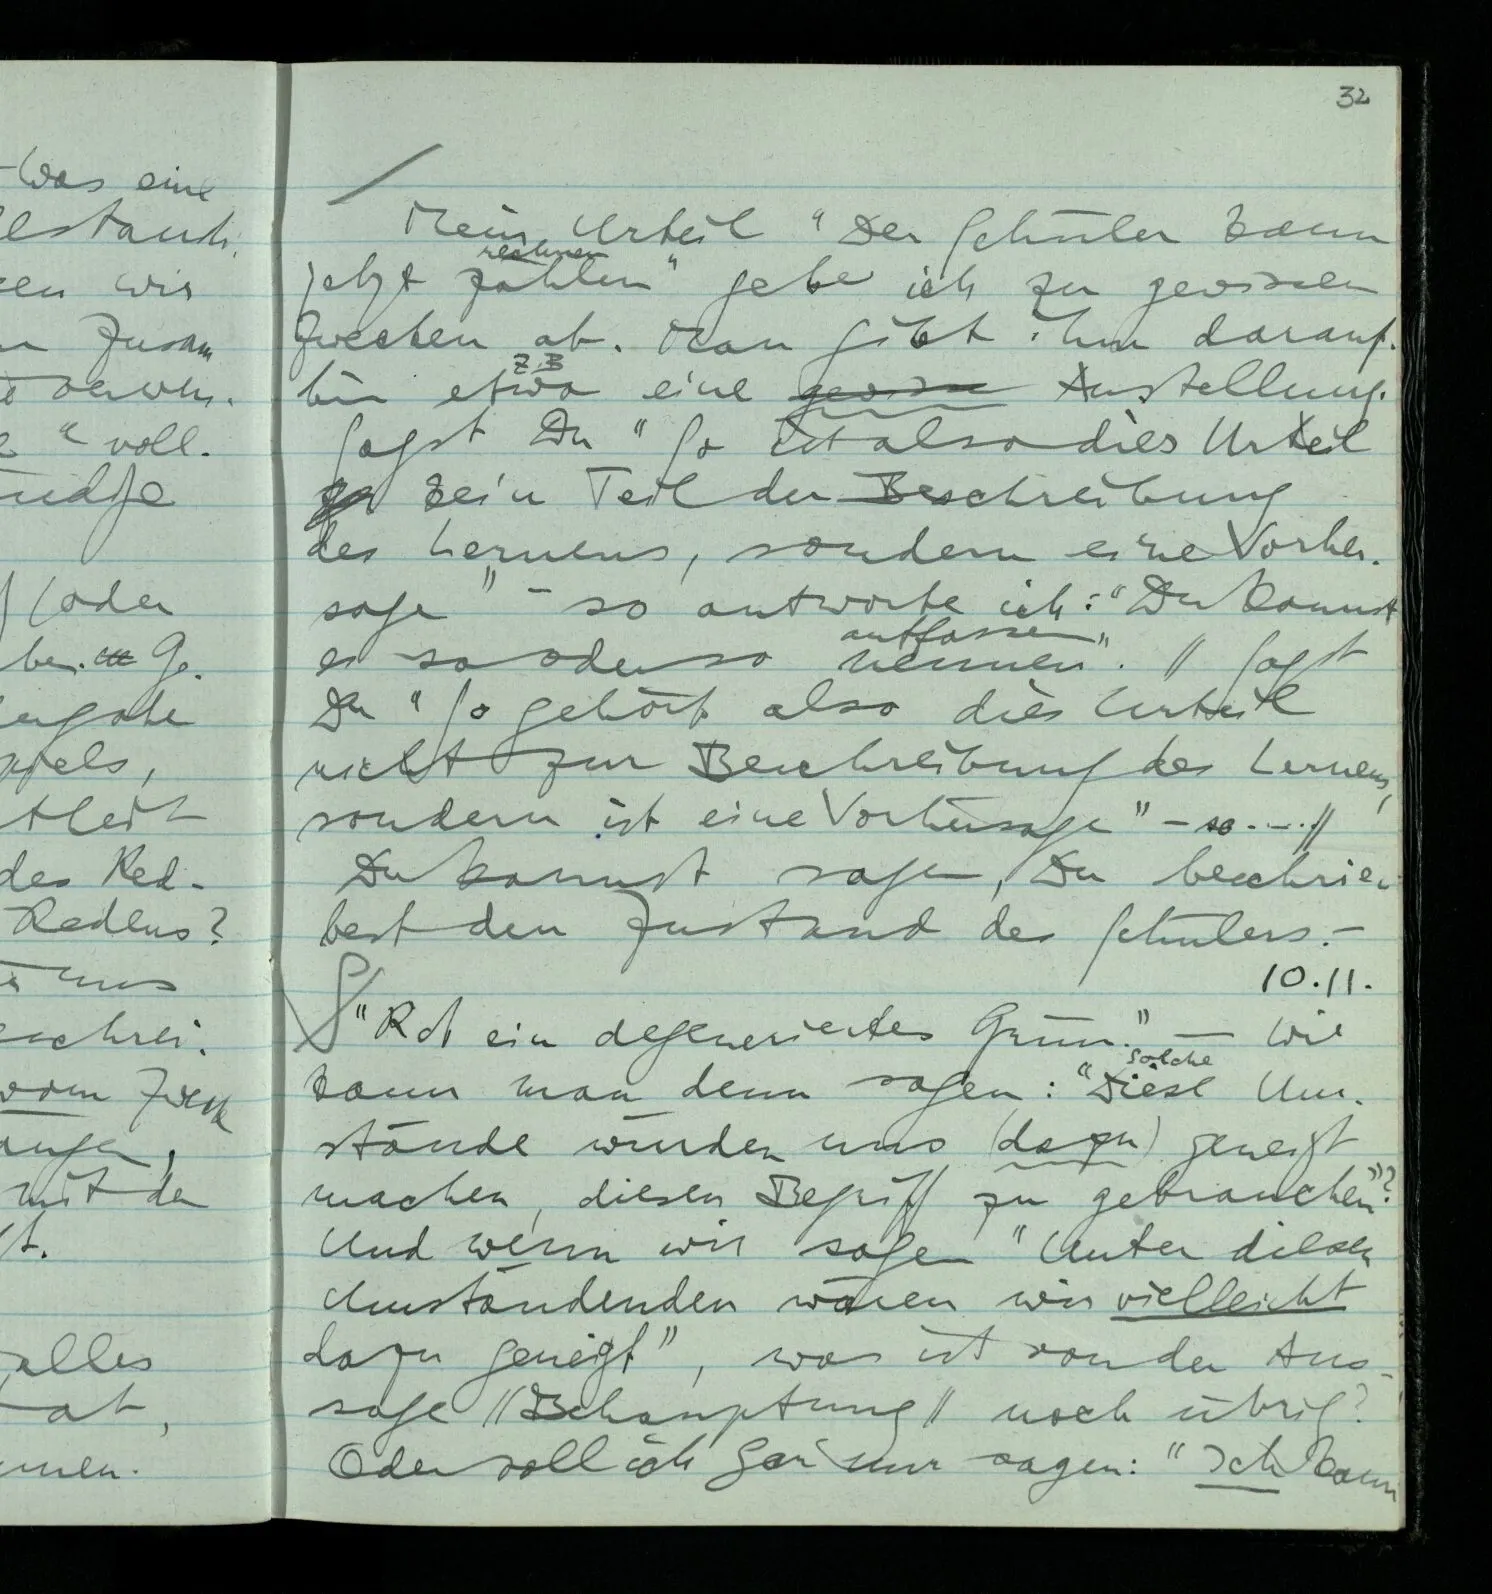 32
Was eine
wir
Zusam
" voll.
(oder
des Red-
Redens?
uns
vom Zweck
mit der
alles
Mein Urteil "Der Schüler kann
rechnen
jetzt zählen" gebe ich zu gewissen
Zwecken ab. Man gibt ihm darauf-
z.B.
hin etwa eine gewisse Anstellung.
Sagst Du "So ist also dies Urteil
kein Teil der Beschreibung
des Lernens, sondern eine Vorher-
sage" – so antworte ich: "Du kannst
auffassen"
es so oder so nennen". // Sagst
Du "So gehört also dies Urteil
nicht zur Beschreibung des Lernens,
sondern ist eine Vorhersage" – so ... //
Du kannst sagen, Du beschrie-
best den Zustand des Schülers. –
10.11.
"Rot ein degeneriertes Grün." — Wie
solche
kann man denn sagen: "Diese Um-
stände würden uns (dazu) geneigt
machen, diesen Begriff zu gebrauchen"?
Und wenn wir sagen "Unter diesen
Umständenden wären wir vielleicht
dazu geneigt", was ist von der Aus-
sage //Behauptung// noch übrig?
Oder soll ich gar nur sagen: "Ich kann